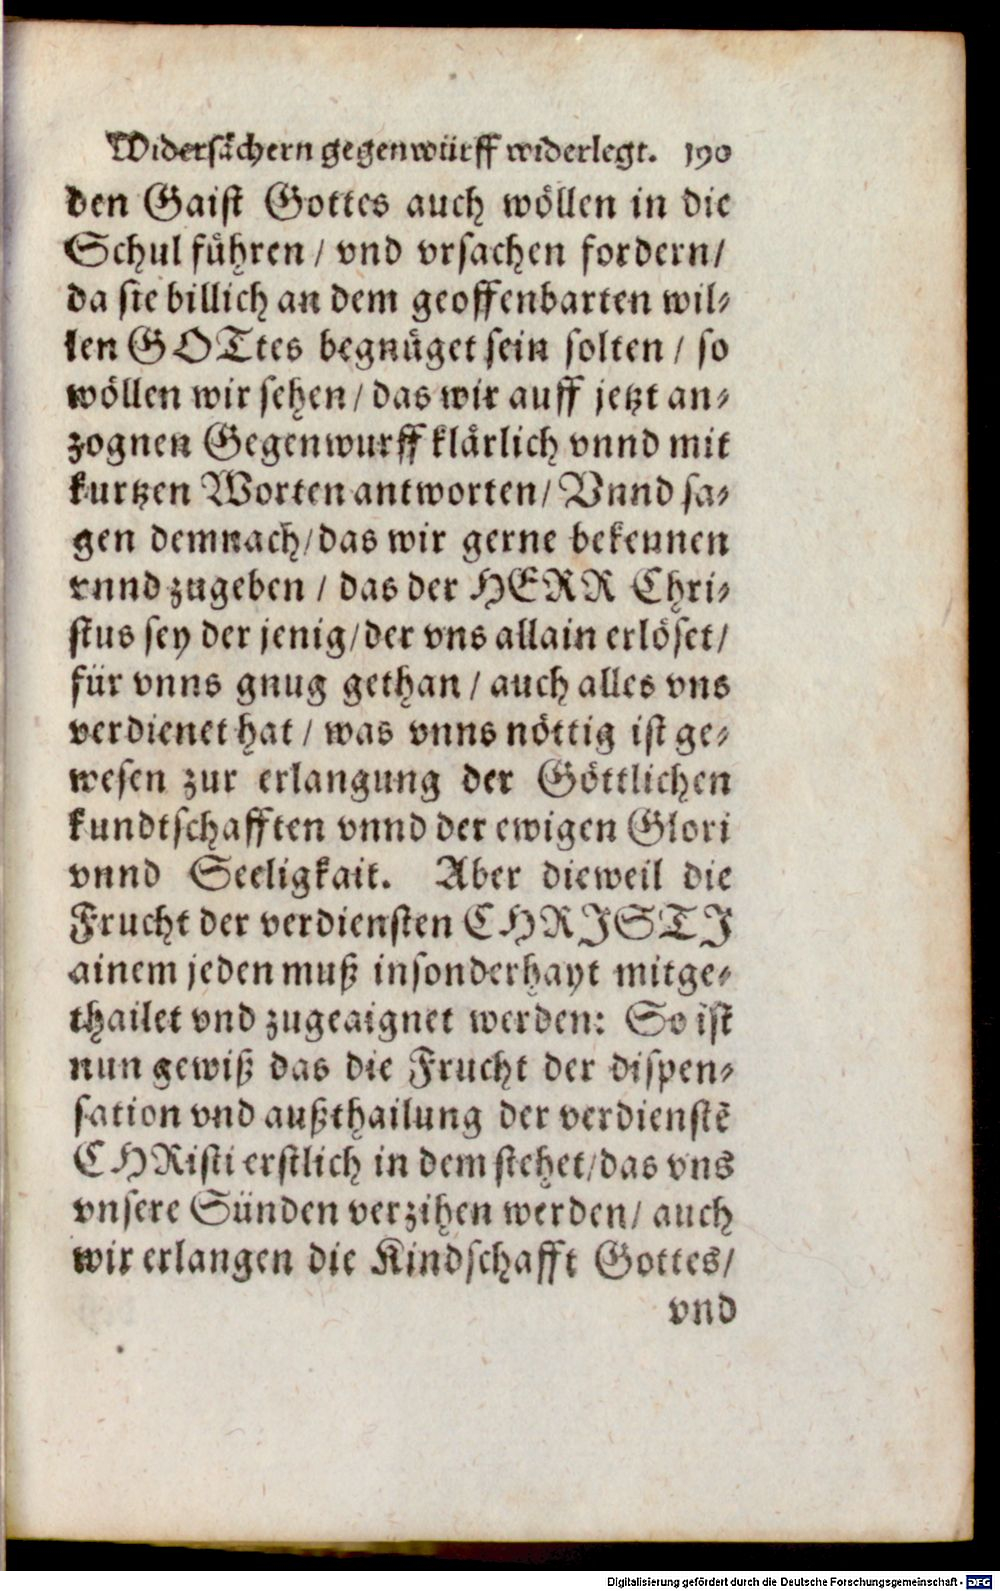 Widersächern gegenwürff widerlegt. 190
den Gaist Gottes auch wöllen in die
Schul führen / vnd vrsachen fordern/
da sie billich an dem geoffenbarten wil-
len GOTtes begnüget sein solten / so
wöllen wir sehen / das wir auff jetzt an-
zognen Gegenwurff klärlich vnnd mit
kurtzen Worten antworten/ Vnnd sa-
gen demnach/das wir gerne bekennen
vnnd zugeben / das der HERR Chri-
stus sey der jenig/der vns allain erlöset/
für vnns gnug gethan / auch alles vns
verdienet hat / was vnns nöttig ist ge-
wesen zur erlangung der Göttlichen
kundtschafften vnnd der ewigen Glori
vnnd Seeligkait. Aber dieweil die
Frucht der verdiensten CHRISTI
ainem jeden muß insonderhayt mitge-
thailet vnd zugeaignet werden: So ist
nun gewiß das die Frucht der dispen-
sation vnd außthailung der verdienstē
CHRisti erstlich in dem stehet/das vns
vnsere Sünden verzihen werden/ auch
wir erlangen die Kindschafft Gottes/
vnd
Digitalisierung gefördert durch die Deutsche Forschungsgemeinschaft - DFG